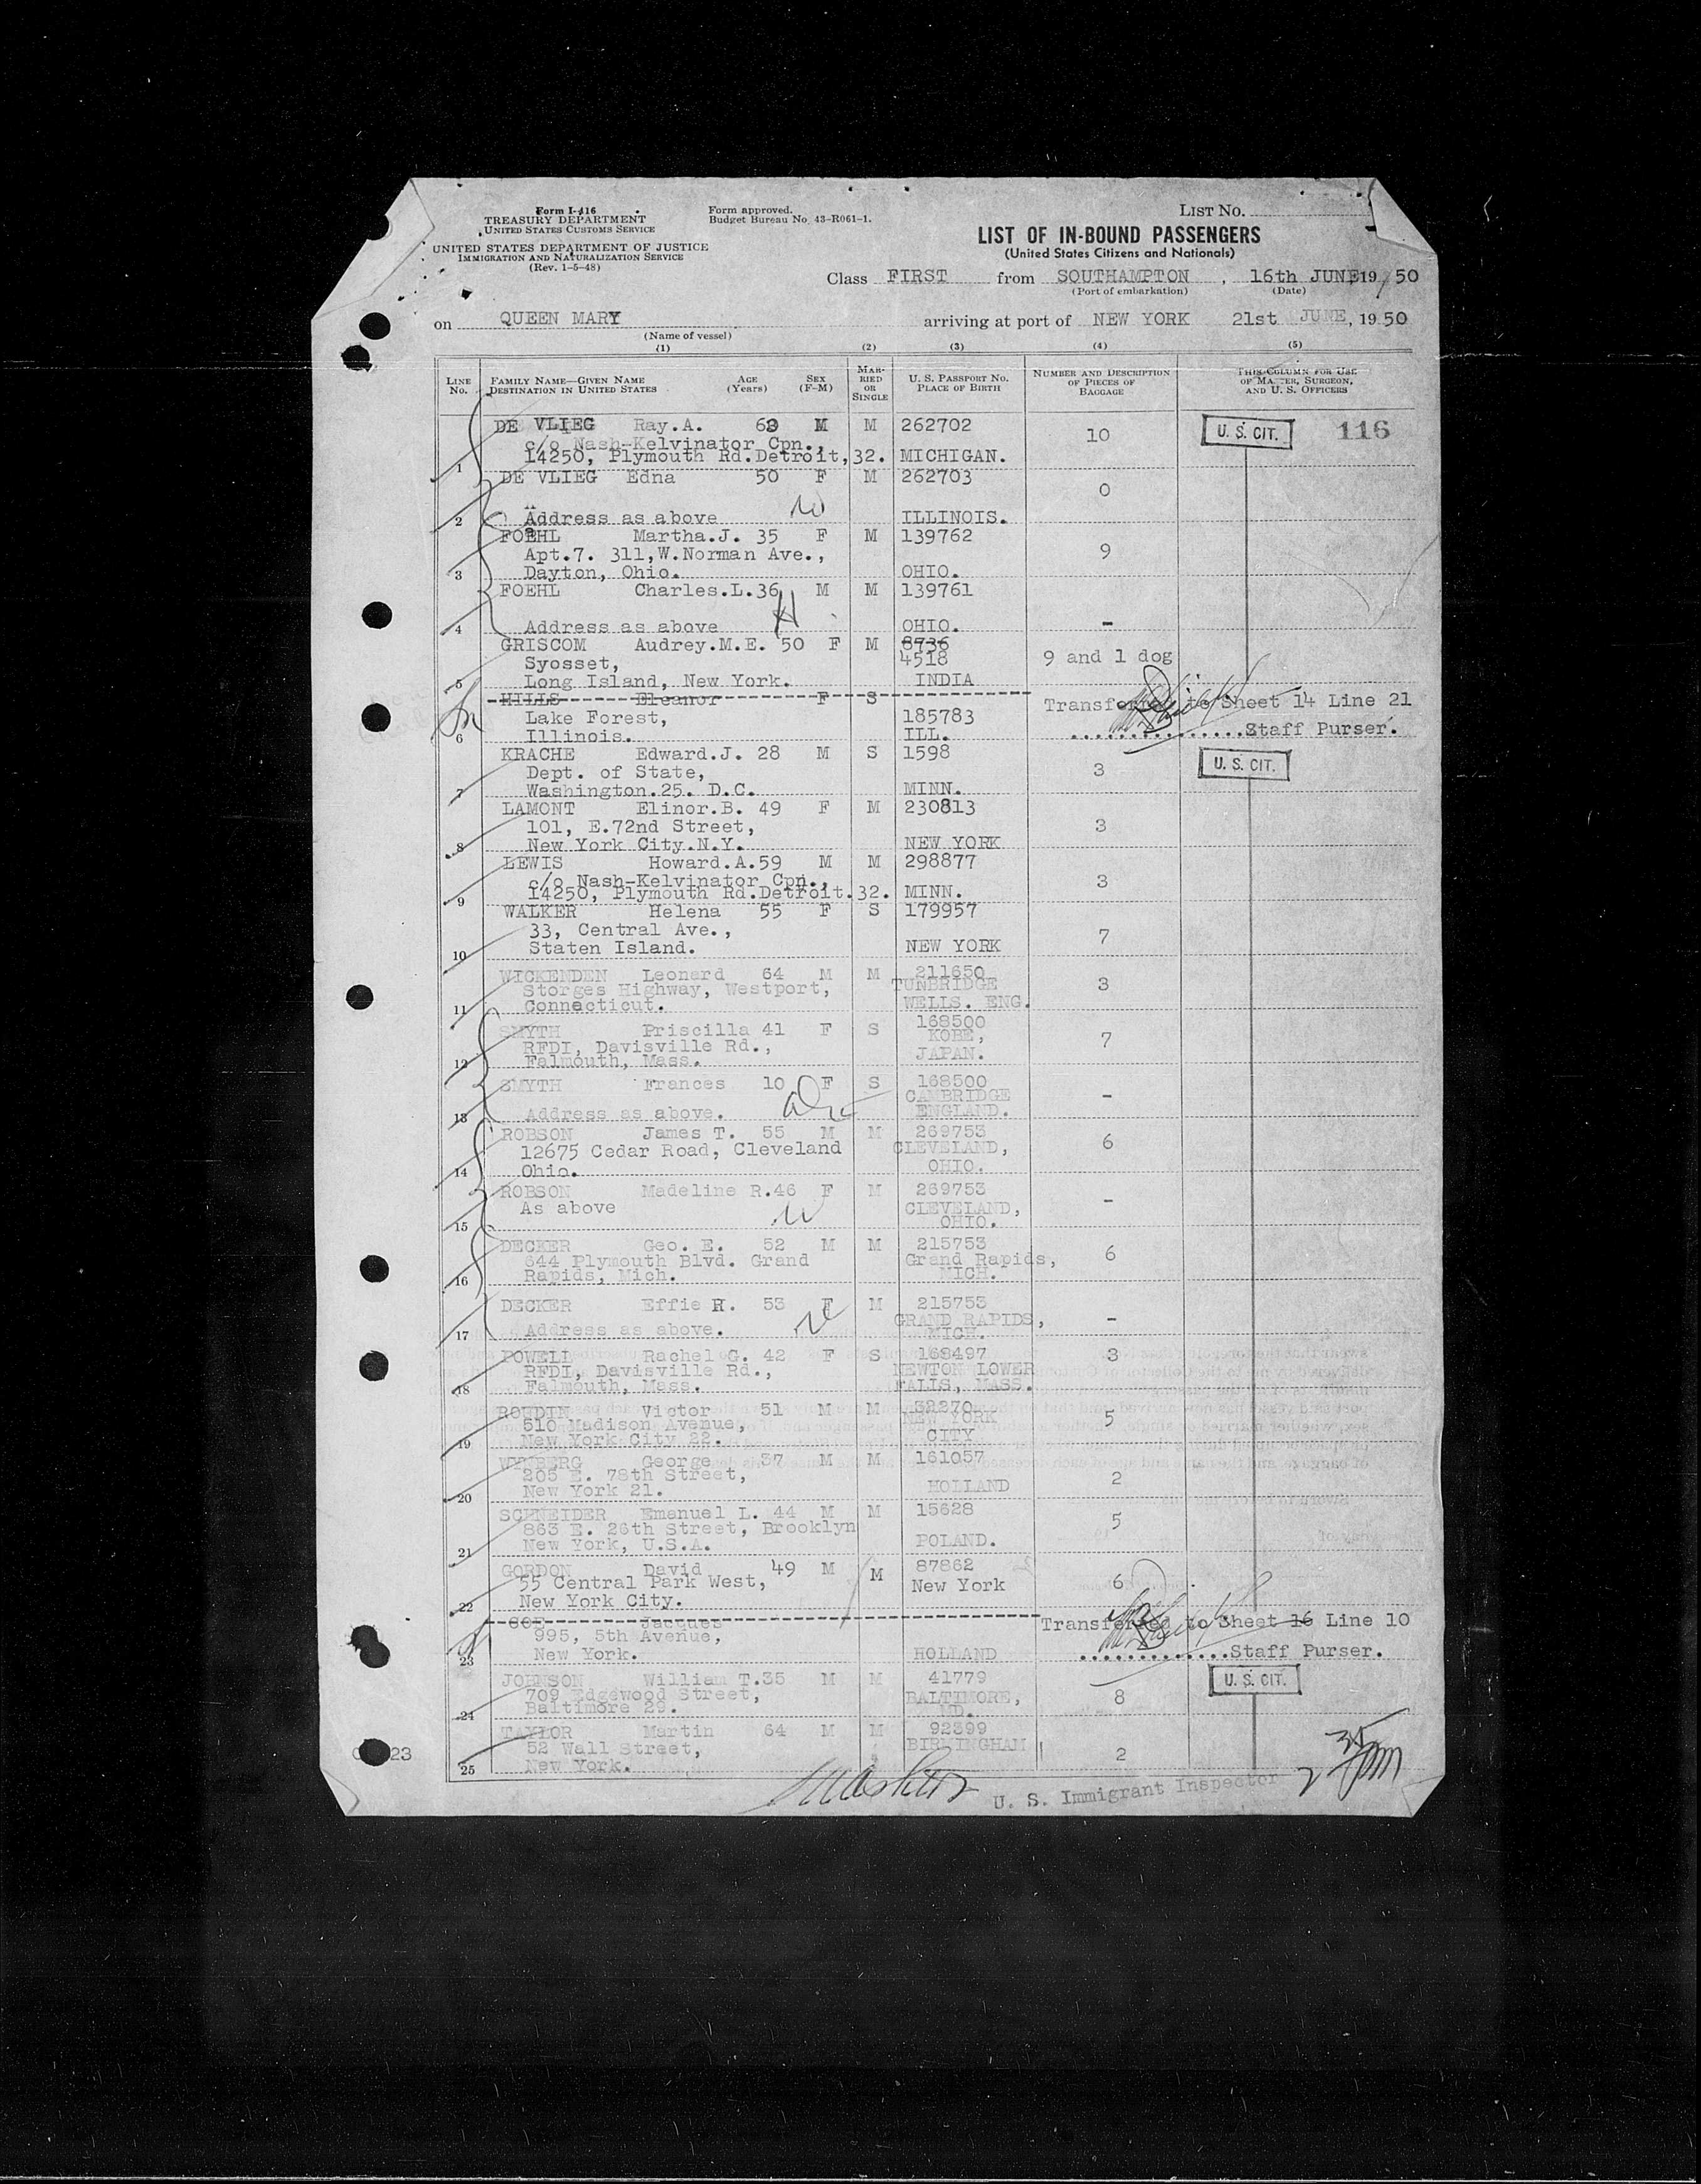 Form I-416
TREASURY DEPARTMENT
UNITED STATES CUSTOMS SERVICE
UNITED STATES DEPARTMENT OF JUSTICE
IMMIGRATION AND NATURALIZATION SERVICE
(Rev. 1-5-48)
Form approved.
Budget Bureau No. 43-R061-1.
LIST NO.
LIST OF IN-BOUND PASSENGERS
(United States Citizens and Nationals)
Class FIRST from SOUTHAMPTON, 16th JUNE, 1950
(Port of embarkation) (Date)
on QUEEN MARY arriving at port of NEW YORK 21st JUNE, 1950
(Name of vessel)
(1) (2) (3) (4) (5)
LINE No. FAMILY NAME—GIVEN NAME DESTINATION IN UNITED STATES AGE (Years) SEX (F-M) MARRIED OR SINGLE U. S. PASSPORT NO. PLACE OF BIRTH NUMBER AND DESCRIPTION OF PIECES OF BAGGAGE THIS COLUMN FOR USE OF MASTER, SURGEON, AND U. S. OFFICERS
DE VLIEG Ray.A. M M 262702 10 U. S. CIT. 116
c/o Nash-Kelvinator Cpn.,
1 14250, Plymouth Rd.Detroit,32. MICHIGAN.
DE VLIEG Edna 50 F M 262703 0
2 Address as above W ILLINOIS.
FOEHL Martha.J. 35 F M 139762 9
Apt.7. 311,W.Norman Ave.,
3 Dayton, Ohio. OHIO.
FOEHL Charles.L.36 M M 139761
4 Address as above H OHIO. -
GRISCOM Audrey.M.E. 50 F M 8736
Syosset, 4518 9 and 1 dog
5 Long Island, New York. INDIA
HILLS Eleanor F S Transferred to Sheet 14 Line 21
Lake Forest, 185783
6 Illinois. ILL. Staff Purser.
KRACHE Edward.J. 28 M S 1598 3 U. S. CIT.
Dept. of State,
7 Washington.25. D.C. MINN.
LAMONT Elinor.B. 49 F M 230813 3
101, E.72nd Street,
8 New York City.N.Y. NEW YORK
LEWIS Howard.A.59 M M 298877 3
c/o Nash-Kelvinator Cpn.,
9 14250, Plymouth Rd.Detroit.32. MINN.
WALKER Helena 55 F S 179957 7
33, Central Ave.,
10 Staten Island. NEW YORK
WICKENDEN Leonard 64 M M 211650 3
Storges Highway, Westport, TUNBRIDGE
11 Connecticut. WELLS. ENG.
SMYTH Priscilla 41 F S 168500 7
RFDI, Davisville Rd., KOBE,
12 Falmouth, Mass. JAPAN.
SMYTH Frances 10 F S 168500 -
CAMBRIDGE
13 Address as above. ENGLAND.
ROBSON James T. 55 M M 269753 6
12675 Cedar Road, Cleveland CLEVELAND,
14 Ohio. OHIO.
ROBSON Madeline R.46 F M 269753 -
As above W CLEVELAND,
15 OHIO.
DECKER Geo. E. 52 M M 215753 6
644 Plymouth Blvd. Grand Grand Rapids,
16 Rapids, Mich. MICH.
DECKER Effie R. 53 F M 215753 -
GRAND RAPIDS,
17 Address as above. MICH.
POWELL Rachel G. 42 F S 168497 3
RFDI, Davisville Rd., NEWTON LOWER
18 Falmouth, Mass. FALLS, MASS.
ROUDIN Victor 51 M M 32270 5
510 Madison Avenue, NEW YORK
19 New York City 22. CITY
George 37 M M 161057 2
205 E. 78th Street,
20 New York 21. HOLLAND
SCHNEIDER Emanuel L. 44 M M 15628 5
863 E. 26th Street, Brooklyn
21 New York, U.S.A. POLAND.
GORDON David 49 M M 87862 6
55 Central Park West, New York
22 New York City.
COE Jacques Transferred to Sheet 16 Line 10
995, 5th Avenue,
23 New York. HOLLAND Staff Purser.
JOHNSON William T.35 M M 41779 8 U. S. CIT.
709 Edgewood Street, BALTIMORE,
24 Baltimore 29. MD.
TAYLOR Martin 64 M M 92399 2
52 Wall Street, BIRMINGHAM
25 New York.
U. S. Immigrant Inspector
23